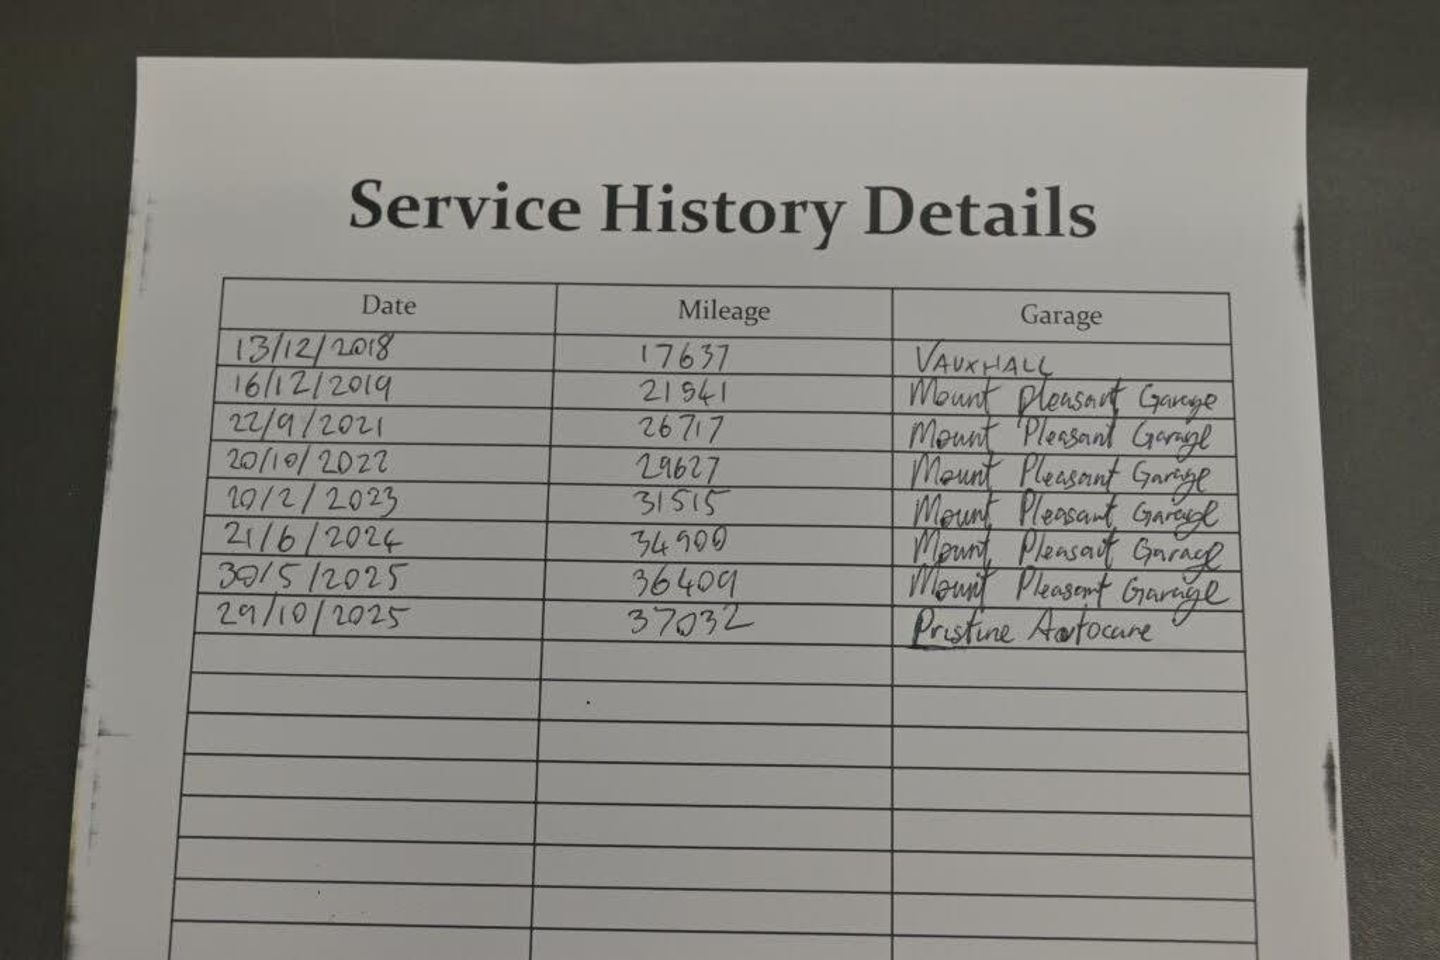 Service History Details
Date Mileage Garage
13/12/2018 17637 VAUXHALL
16/12/2019 21541 Mount Pleasant Garage
22/9/2021 26717 Mount Pleasant Garage
20/10/2022 29627 Mount Pleasant Garage
20/2/2023 31515 Mount Pleasant Garage
21/6/2024 34900 Mount Pleasant Garage
30/5/2025 36409 Mount Pleasant Garage
29/10/2025 37032 Pristine Autocare